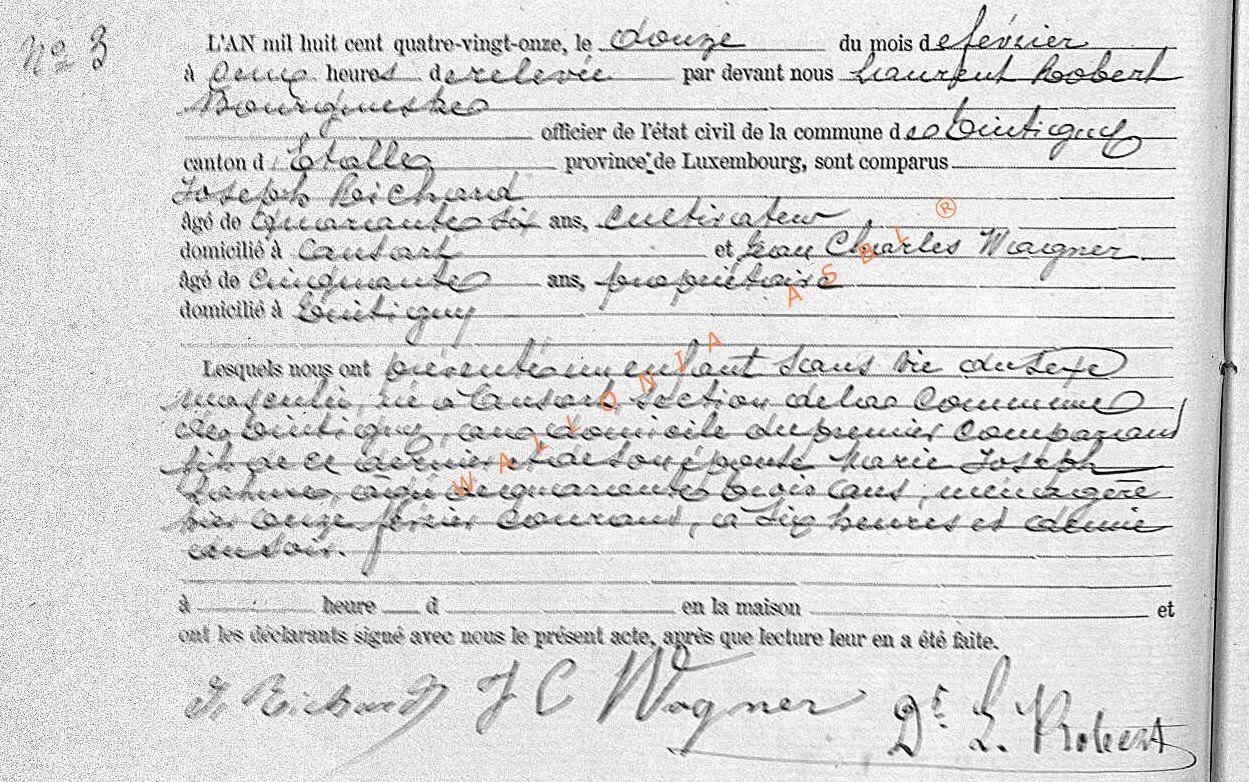 No 3
L'AN mil huit cent quatre-vingt-onze, le douze du mois de février
à cinq heures de relevée par devant nous Laurent Robert
Bourgmestre
officier de l'état civil de la commune de Tintigny
canton d'Etalle province de Luxembourg, sont comparus
Joseph Richard
âgé de quarante six ans, cultivateur
domicilié à Ansart et Jean Charles Wagner
âgé de cinquante ans, propriétaire
domicilié à Tintigny
Lesquels nous ont présenté un enfant sans vie du sexe
masculin, né à Ansart, section de la commune
de Tintigny, au domicile du premier comparant
fils de ce dernier et de son épouse Marie Joseph
âgée de quarante trois ans, ménagère
hier onze février courant, à six heures et demie
du soir.
à heure d en la maison et
ont les déclarants signé avec nous le présent acte, après que lecture leur en a été faite.
J Richard J C Wagner Dr L. Robert
WALLONIA ASBL ®